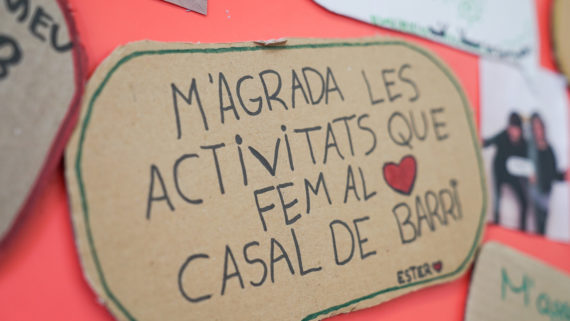 MEU
B
M'AGRADA LES
ACTIVITATS QUE
FEM AL
CASAL DE BARRI
ESTER
M'a